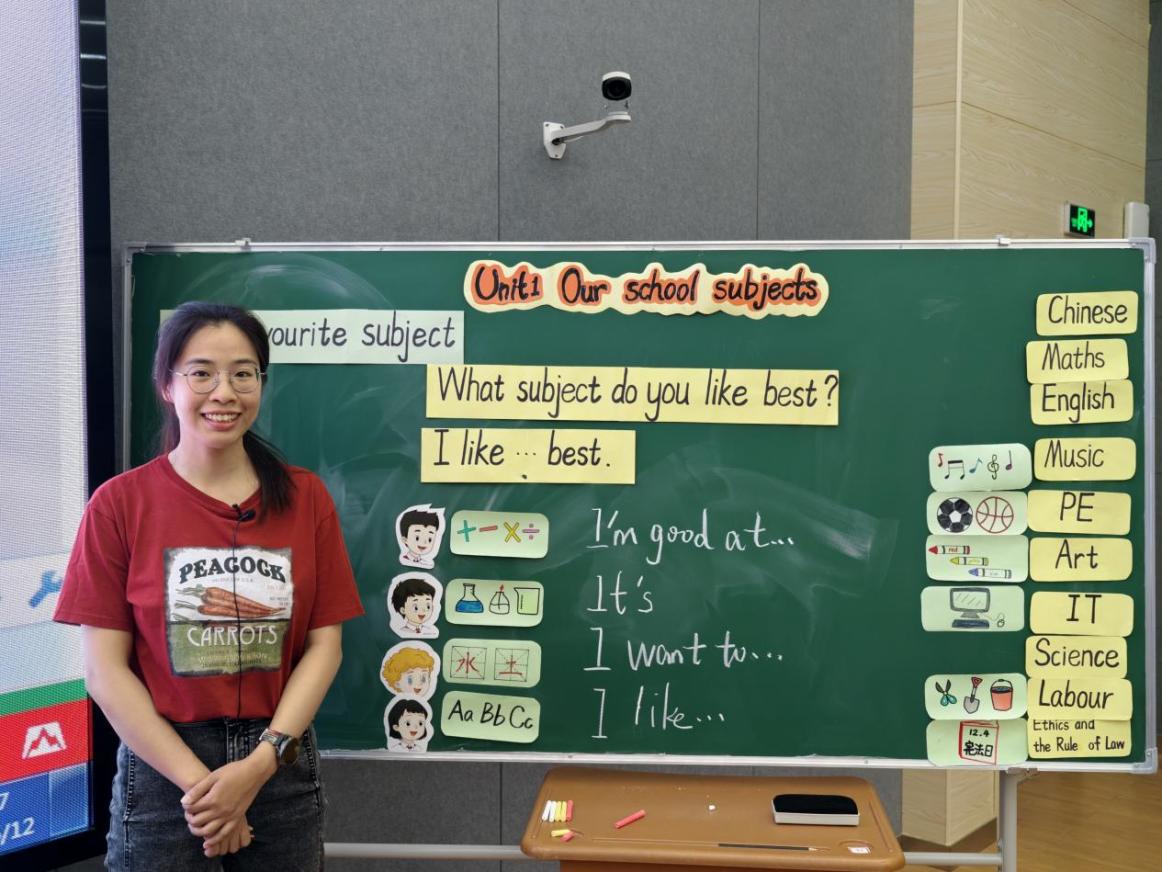 Unit1 Our school subjects
vourite subject
What subject do you like best?
I like ... best.
I'm good at...
It's
I want to...
I like...
+ - × ÷
水 土
Aa Bb Cc
Chinese
Maths
English
Music
PE
red
Art
IT
Science
Labour
12.4
宪法日
Ethics and
the Rule of Law
PEACOCK
CARROTS
7
/12